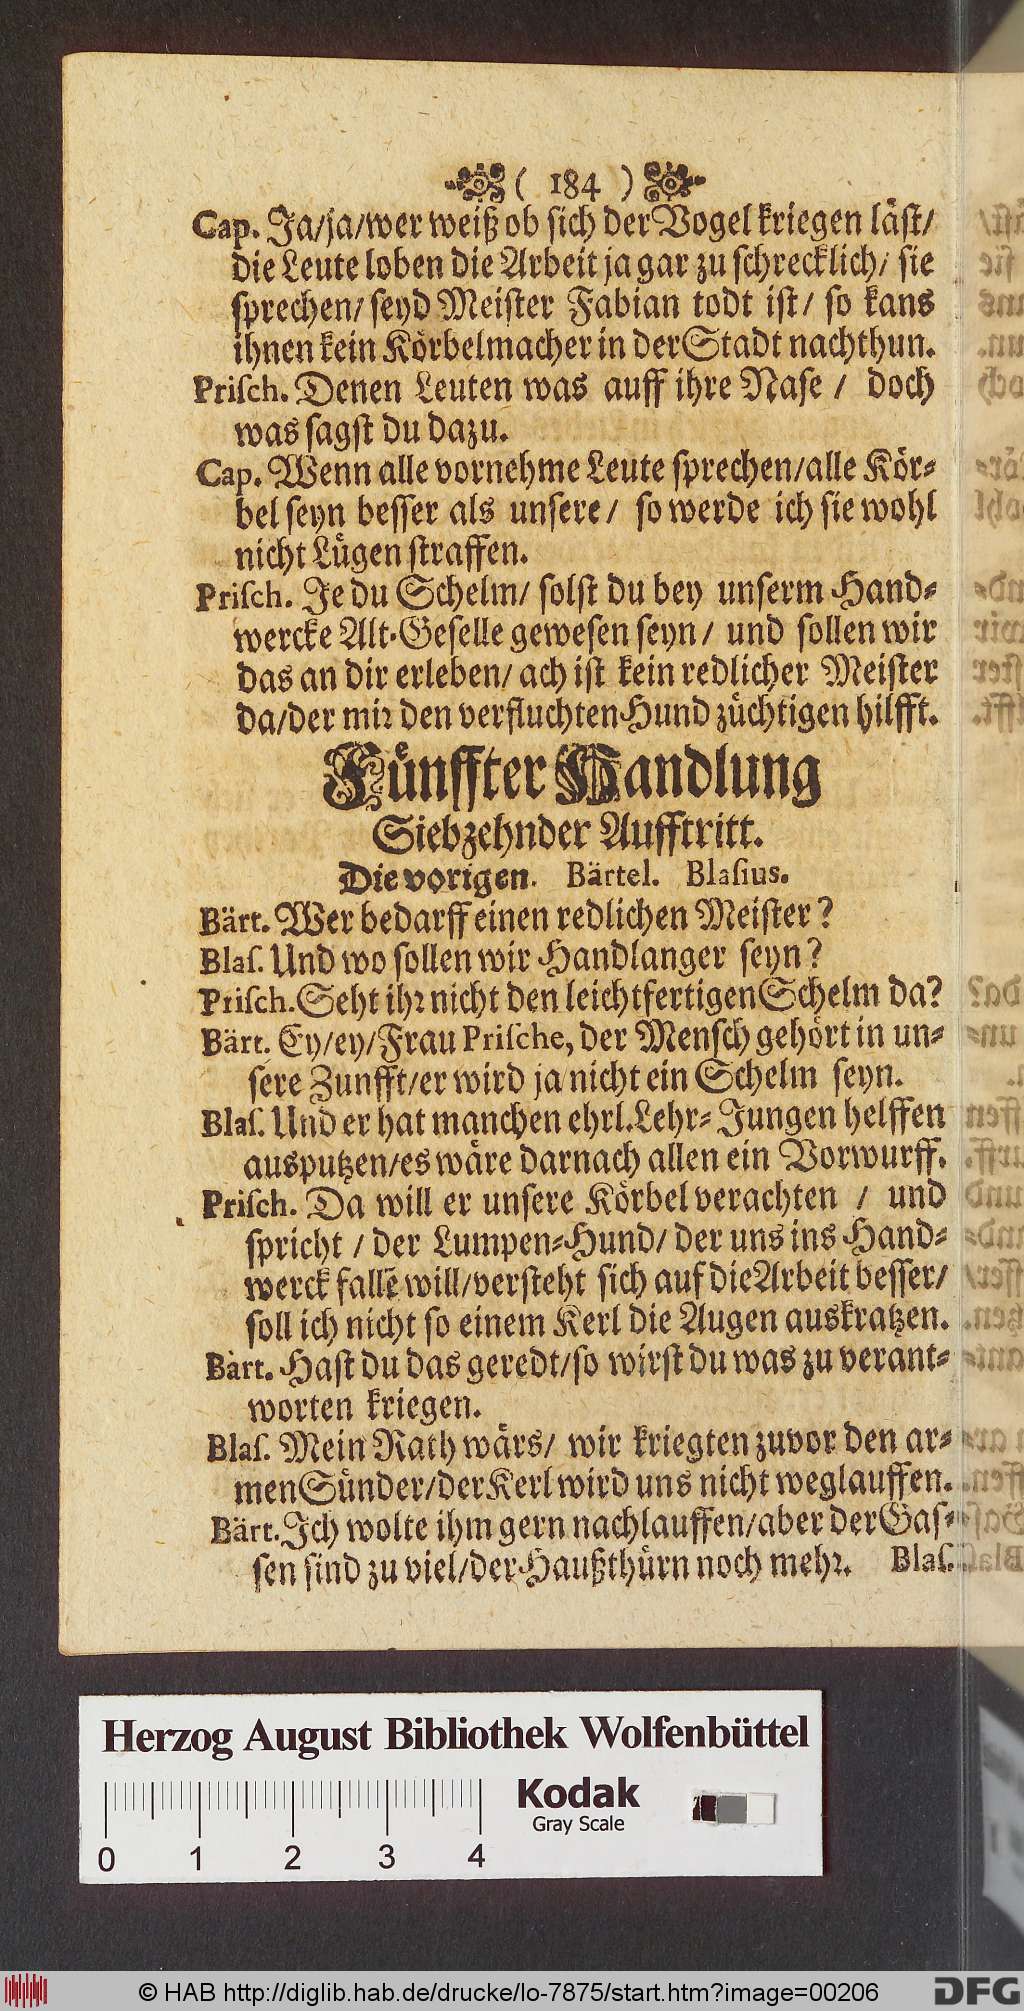 ( 184 )
Cap. Ja/ja/wer weiß ob sich der Vogel kriegen läst/
die Leute loben die Arbeit ja gar zu schrecklich/ sie
sprechen/ seyd Meister Fabian todt ist/ so kans
ihnen kein Körbelmacher in der Stadt nachthun.
Prisch. Denen Leuten was auff ihre Nase / doch
was sagst du dazu.
Cap. Wenn alle vornehme Leute sprechen/alle Kör-
bel seyn besser als unsere/ so werde ich sie wohl
nicht Lügen straffen.
Prisch. Je du Schelm/ solst du bey unserm Hand-
wercke Alt-Geselle gewesen seyn/ und sollen wir
das an dir erleben/ ach ist kein redlicher Meister
da/der mir den verfluchten Hund züchtigen hilfft.
Fünffter Handlung
Siebzehnder Aufftritt.
Die vorigen. Bärtel. Blasius.
Bärt. Wer bedarff einen redlichen Meister?
Blas. Und wo sollen wir Handlanger seyn?
Prisch. Seht ihr nicht den leichtfertigen Schelm da?
Bärt. Ey/ey/Frau Prische, der Mensch gehört in un-
sere Zunfft/er wird ja nicht ein Schelm seyn.
Blas. Und er hat manchen ehrl. Lehr-Jungen helffen
ausputzen/es wäre darnach allen ein Vorwurff.
Prisch. Da will er unsere Körbel verachten / und
spricht / der Lumpen-Hund/ der uns ins Hand-
werck fallē will/versteht sich auf die Arbeit besser/
soll ich nicht so einem Kerl die Augen auskratzen.
Bärt. Hast du das geredt/so wirst du was zu verant-
worten kriegen.
Blas. Mein Rath wärs/ wir kriegten zuvor den ar-
men Sünder/der Kerl wird uns nicht weglauffen.
Bärt. Ich wolte ihm gern nachlauffen/aber der Gas-
sen sind zu viel/der Haußthürn noch mehr. Blas.
Herzog August Bibliothek Wolfenbüttel
Kodak
Gray Scale
0 1 2 3 4
© HAB http://diglib.hab.de/drucke/lo-7875/start.htm?image=00206
DFG